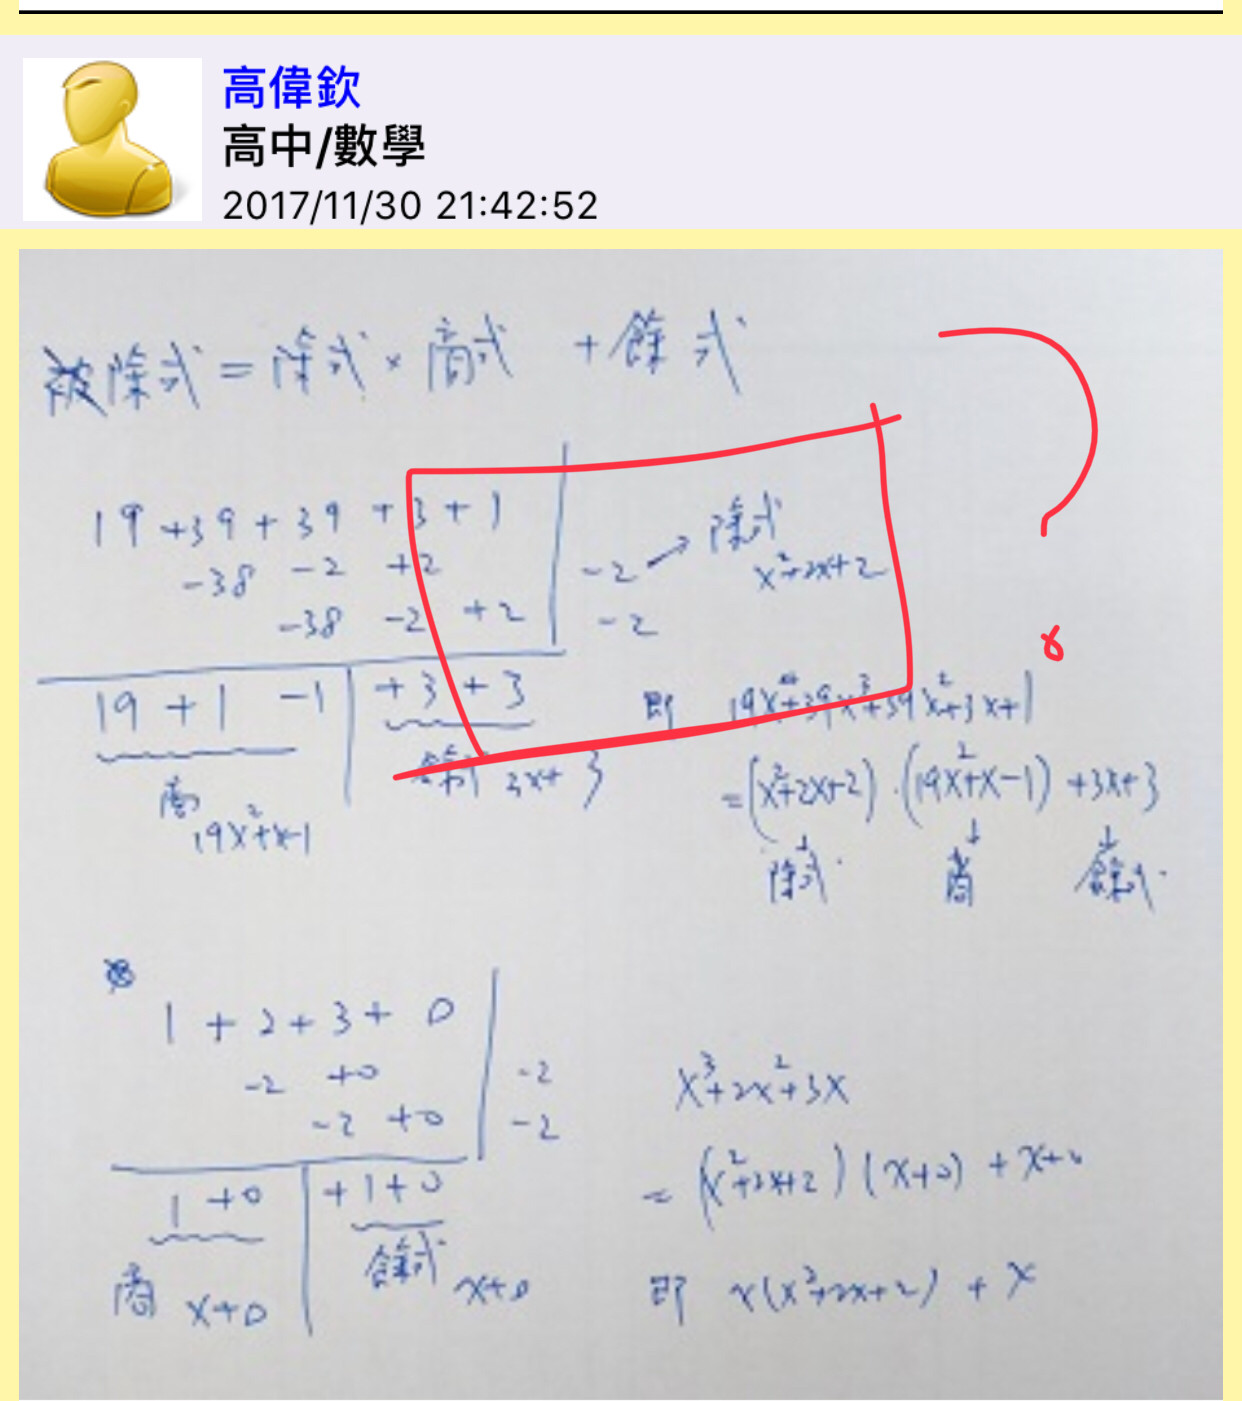 高偉欽
高中/數學
2017/11/30 21:42:52
被除式 = 除式 × 商式 + 餘式
19 + 39 + 39 + 3 + 1
-38 -2 +2
-38 -2 +2
-2 → 除式
x²+2x+2
-2
19 + 1 -1 + 3 + 3
商
19x²+x-1
餘式 3x+3
即 19x⁴+39x³+39x²+3x+1
=(x²+2x+2)·(19x²+x-1)+3x+3
↓ ↓ ↓
除式 商 餘式
1 + 2 + 3 + 0
-2 +0 -2
-2 +0 -2
1 +0 +1+0
商 x+0
餘式 x+0
x³+2x²+3x
= (x²+2x+2)(x+0) + x+0
即 x(x²+2x+2) + x
?